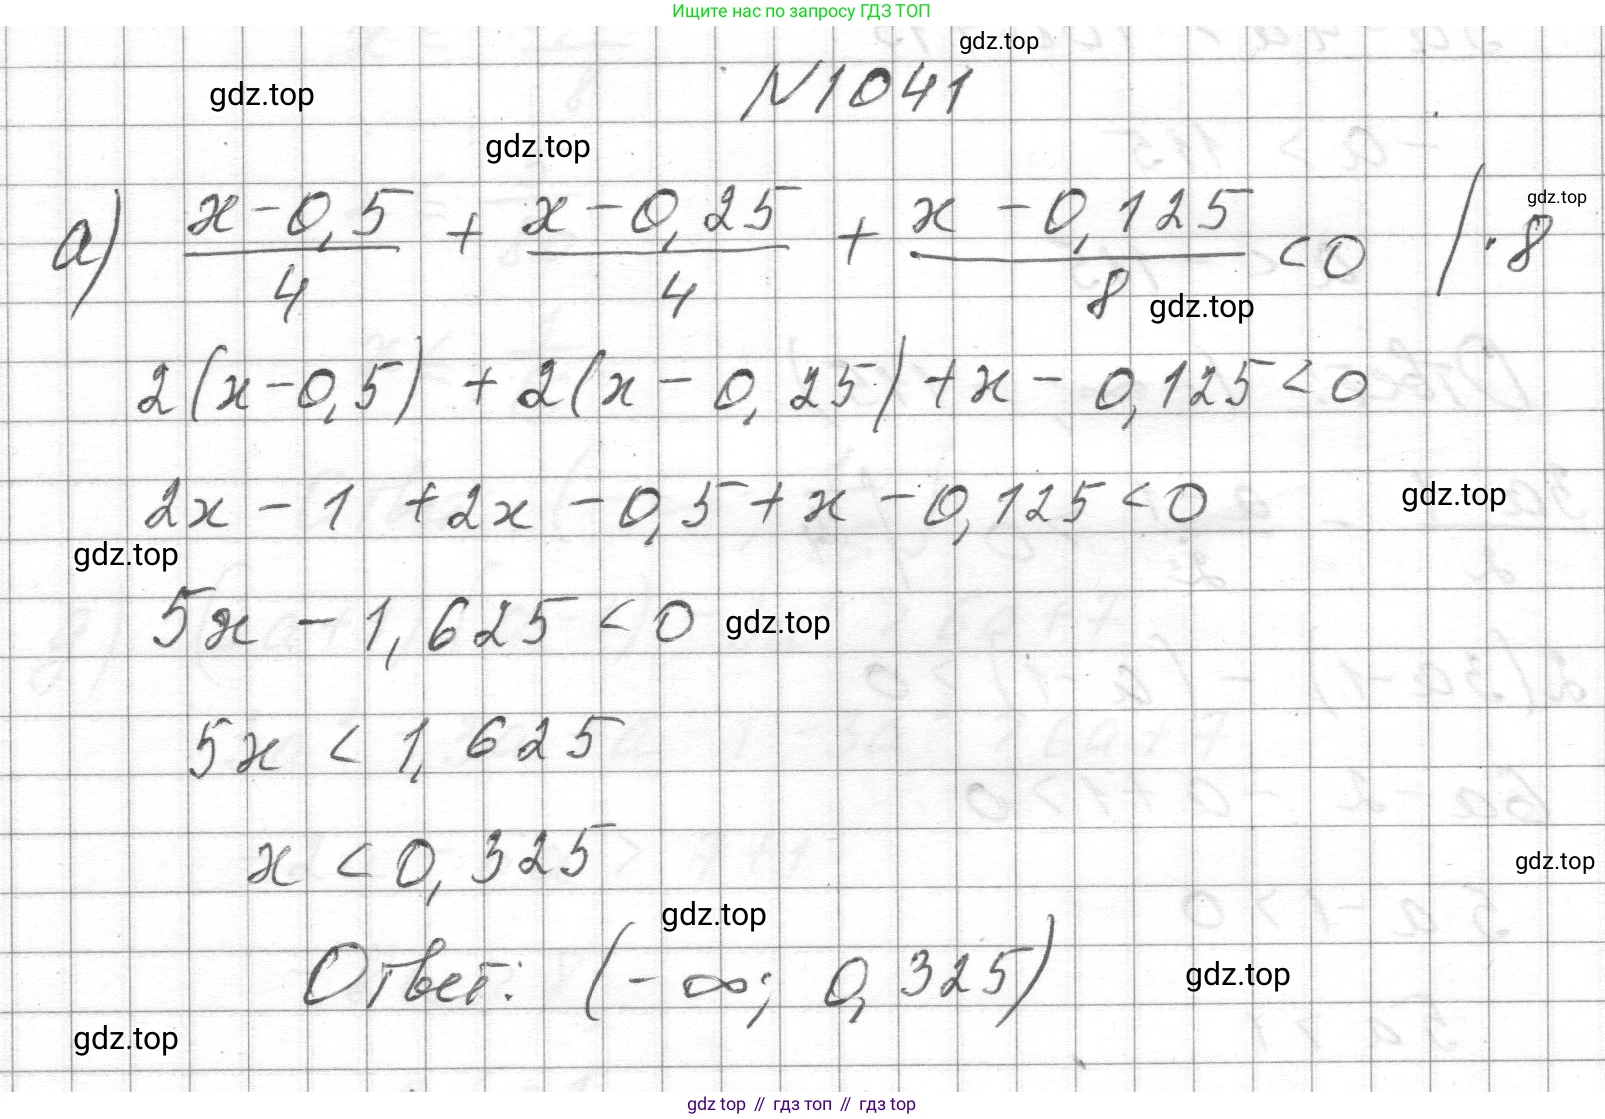 Ищите нас по запросу ГДЗ ТОП
gdz.top
N1041
gdz.top
gdz.top
а) (x-0,5)/4 + (x-0,25)/4 + (x-0,125)/8 <0 /·8
gdz.top
gdz.top
2(x-0,5)+2(x-0,25)+x-0,125<0
2x-1+2x-0,5+x-0,125<0
gdz.top
gdz.top
5x-1,625<0
gdz.top
5x<1,625
x<0,325
gdz.top
gdz.top
Ответ: (-∞; 0,325)
gdz.top
gdz.top
gdz top // гдз топ // гдз top